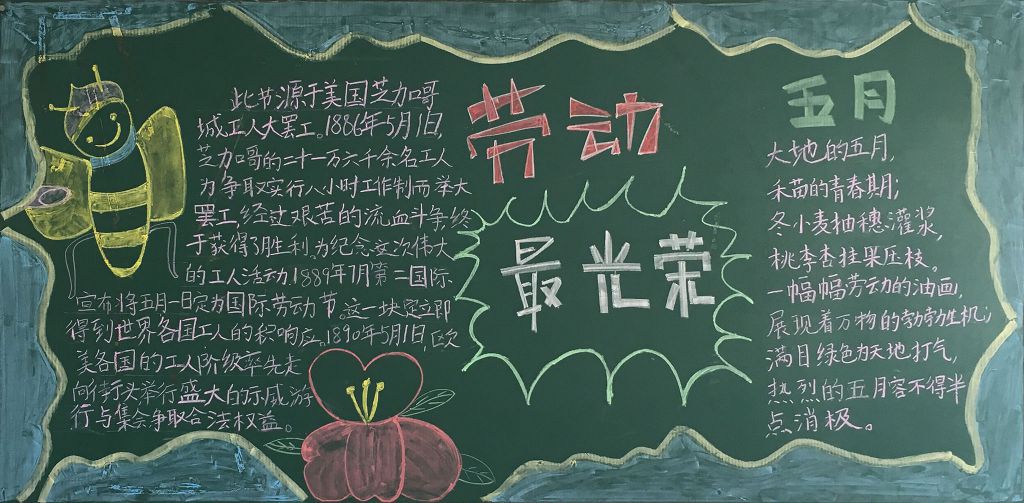 此节源于美国芝加哥
城工人大罢工。1886年5月1日,
芝加哥的二十一万六千余名工人
为争取实行八小时工作制而举大
罢工,经过艰苦的流血斗争,终
于获得了胜利。为纪念这次伟大
的工人活动,1889年7月第二国际
宣布将五月一日定为国际劳动节。这一决定立即
得到世界各国工人的积响应。1890年5月1日,欧
美各国的工人阶级率先走
向街头举行盛大的示威游
行与集会争取合法权益。
劳动
最光荣
五月
大地的五月,
禾苗的青春期;
冬小麦抽穗灌浆,
桃李杏挂果压枝。
一幅幅劳动的油画,
展现着万物的勃勃生机;
满目绿色为天地打气,
热烈的五月容不得半
点消极。